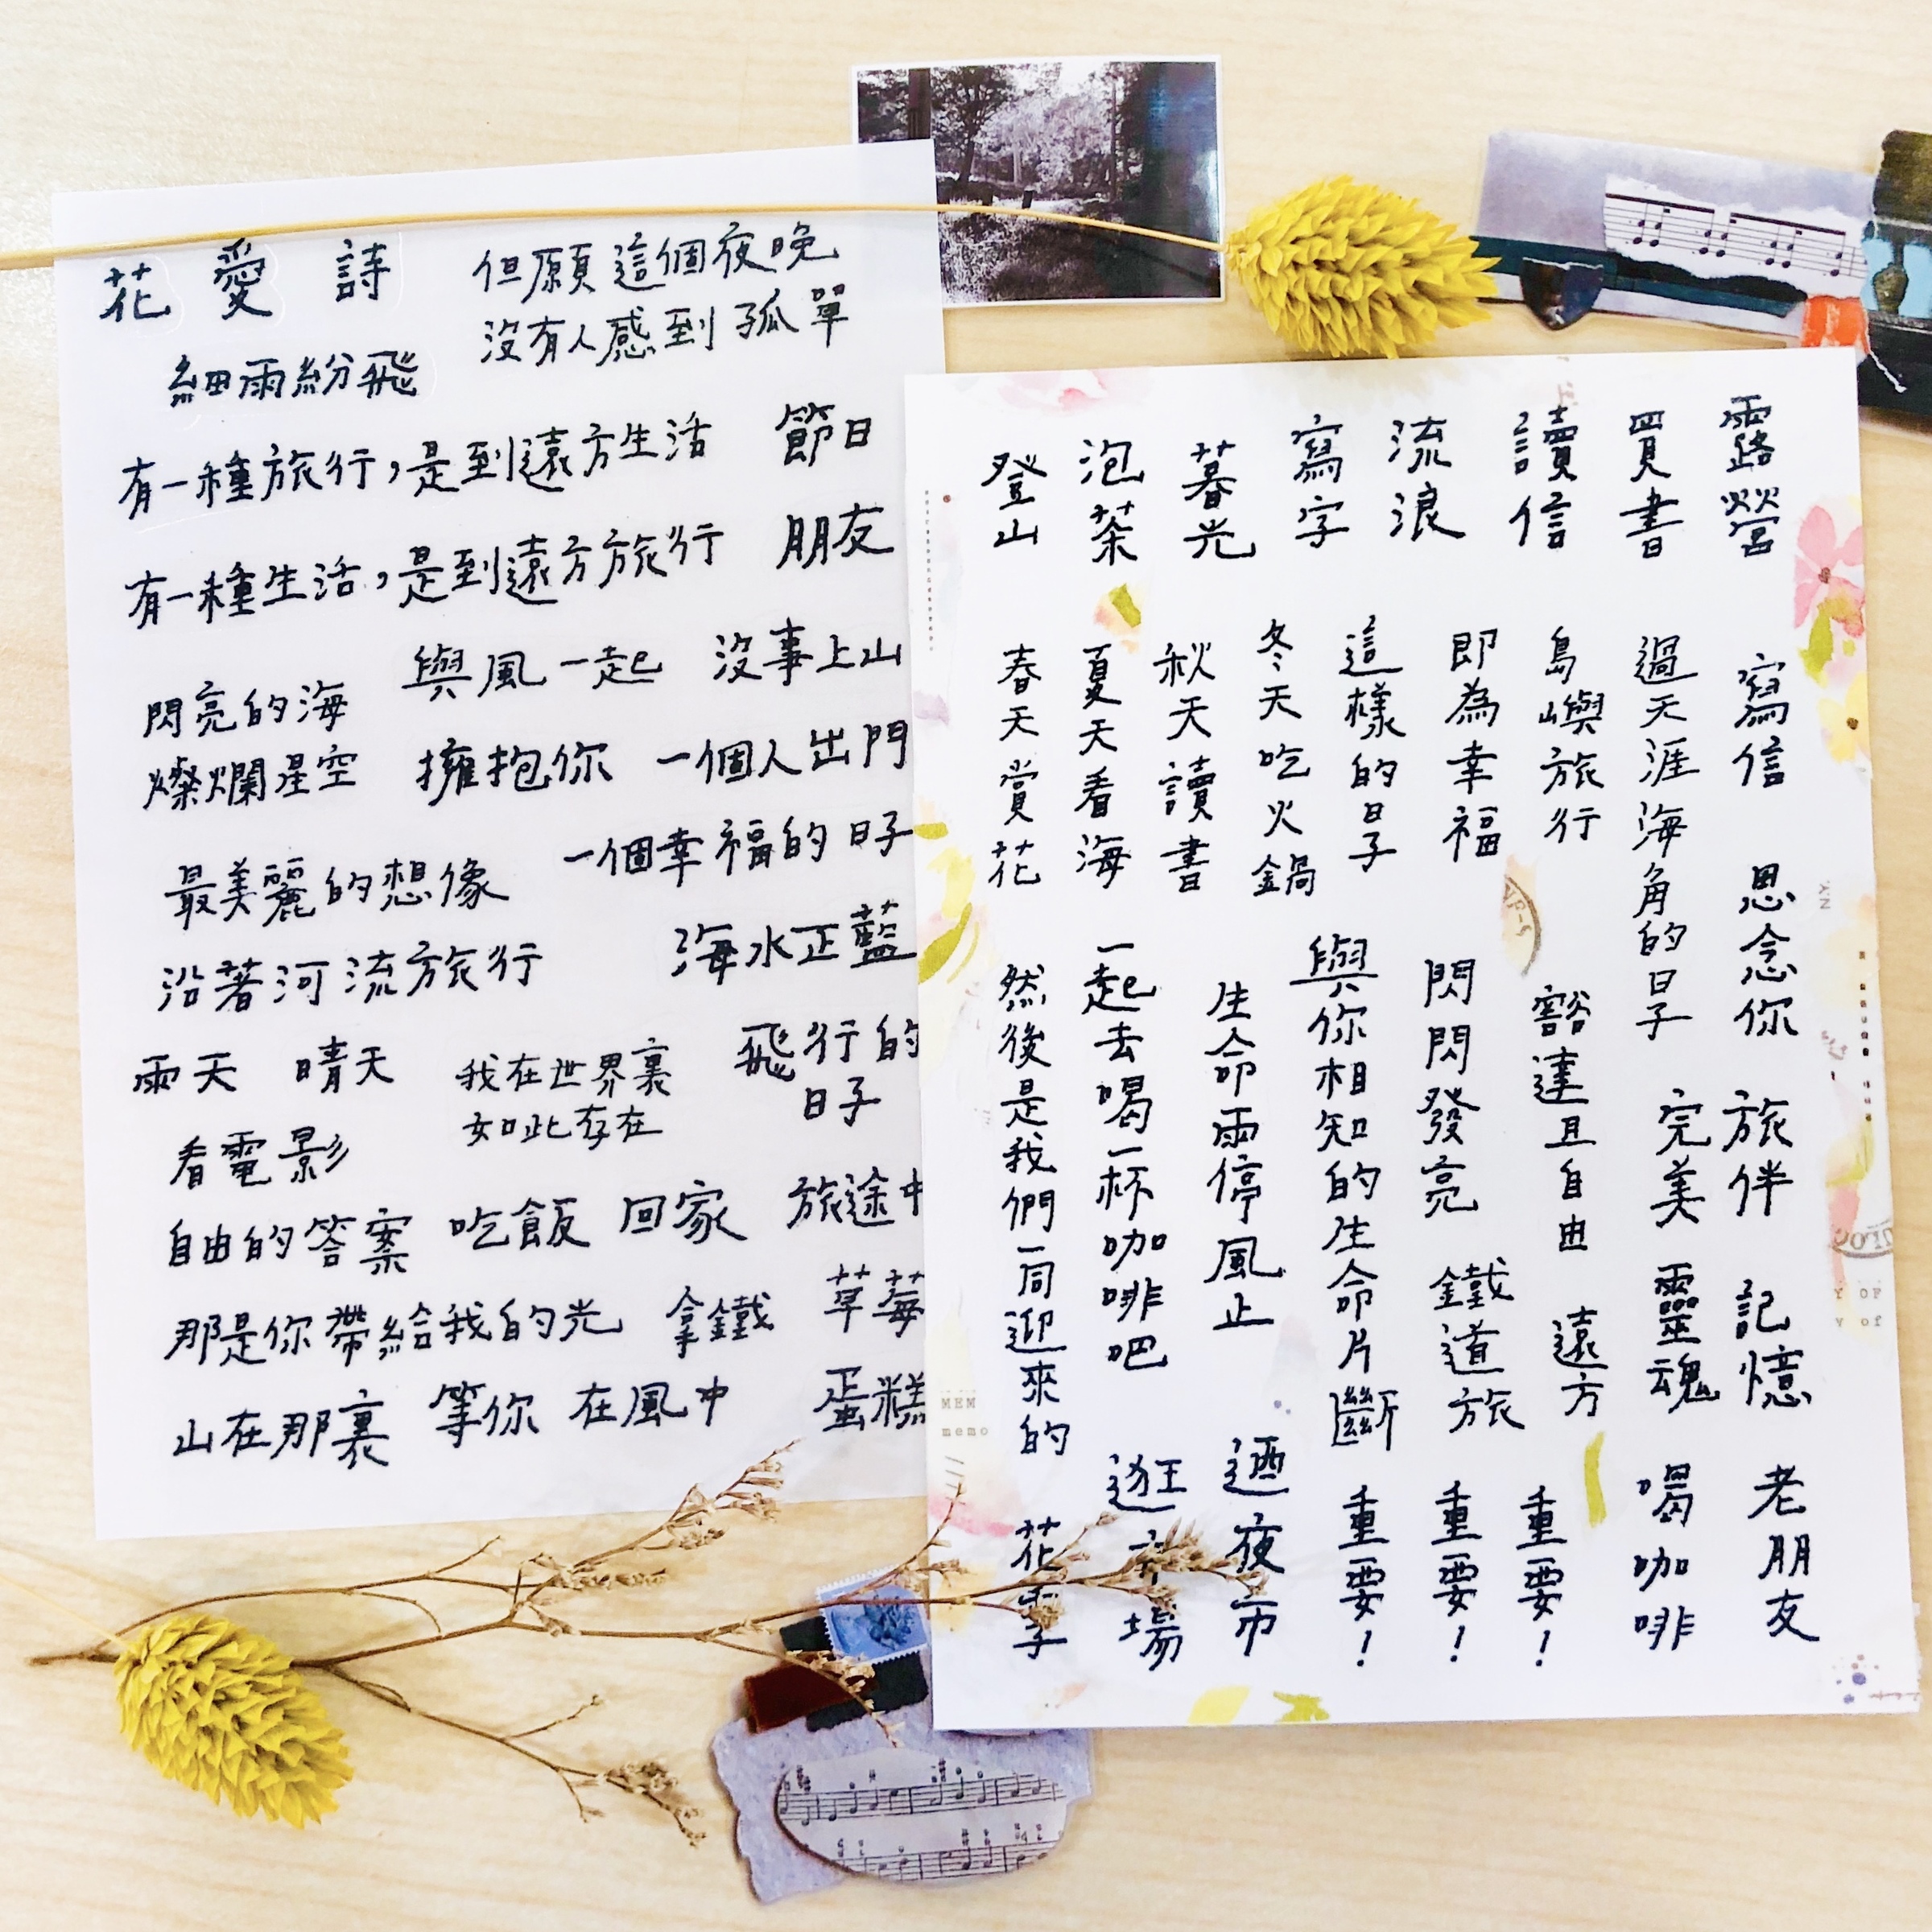 花 愛 詩
但願這個夜晚
沒有人感到孤單
細雨紛飛
有一種旅行,是到遠方生活 節日
有一種生活,是到遠方旅行 朋友
與風一起 沒事上山
閃亮的海
燦爛星空 擁抱你 一個人出門
最美麗的想像 一個幸福的日子
沿著河流旅行 海水正藍
雨天 晴天
我在世界裏
如此存在
飛行的
日子
看電影
自由的答案 吃飯 回家 旅途中
那是你帶給我的光 拿鐵 草莓
山在那裏 等你 在風中 蛋糕
露營 寫信 思念你 旅伴 記憶 老朋友
買書 過天涯海角的日子 完美靈魂 喝咖啡
讀信 島嶼旅行 豁達且自由 遠方 重要!
流浪 即為幸福 閃閃發亮 鐵道旅 重要!
寫字 這樣的日子 與你相知的生命片斷 重要!
暮光 冬天吃火鍋 生命雨停風止 迺夜市
泡茶 秋天讀書 一起去喝一杯咖啡吧 逛市場
夏天看海
登山 春天賞花 然後是我們一同迎來的 花季
MEM
memo